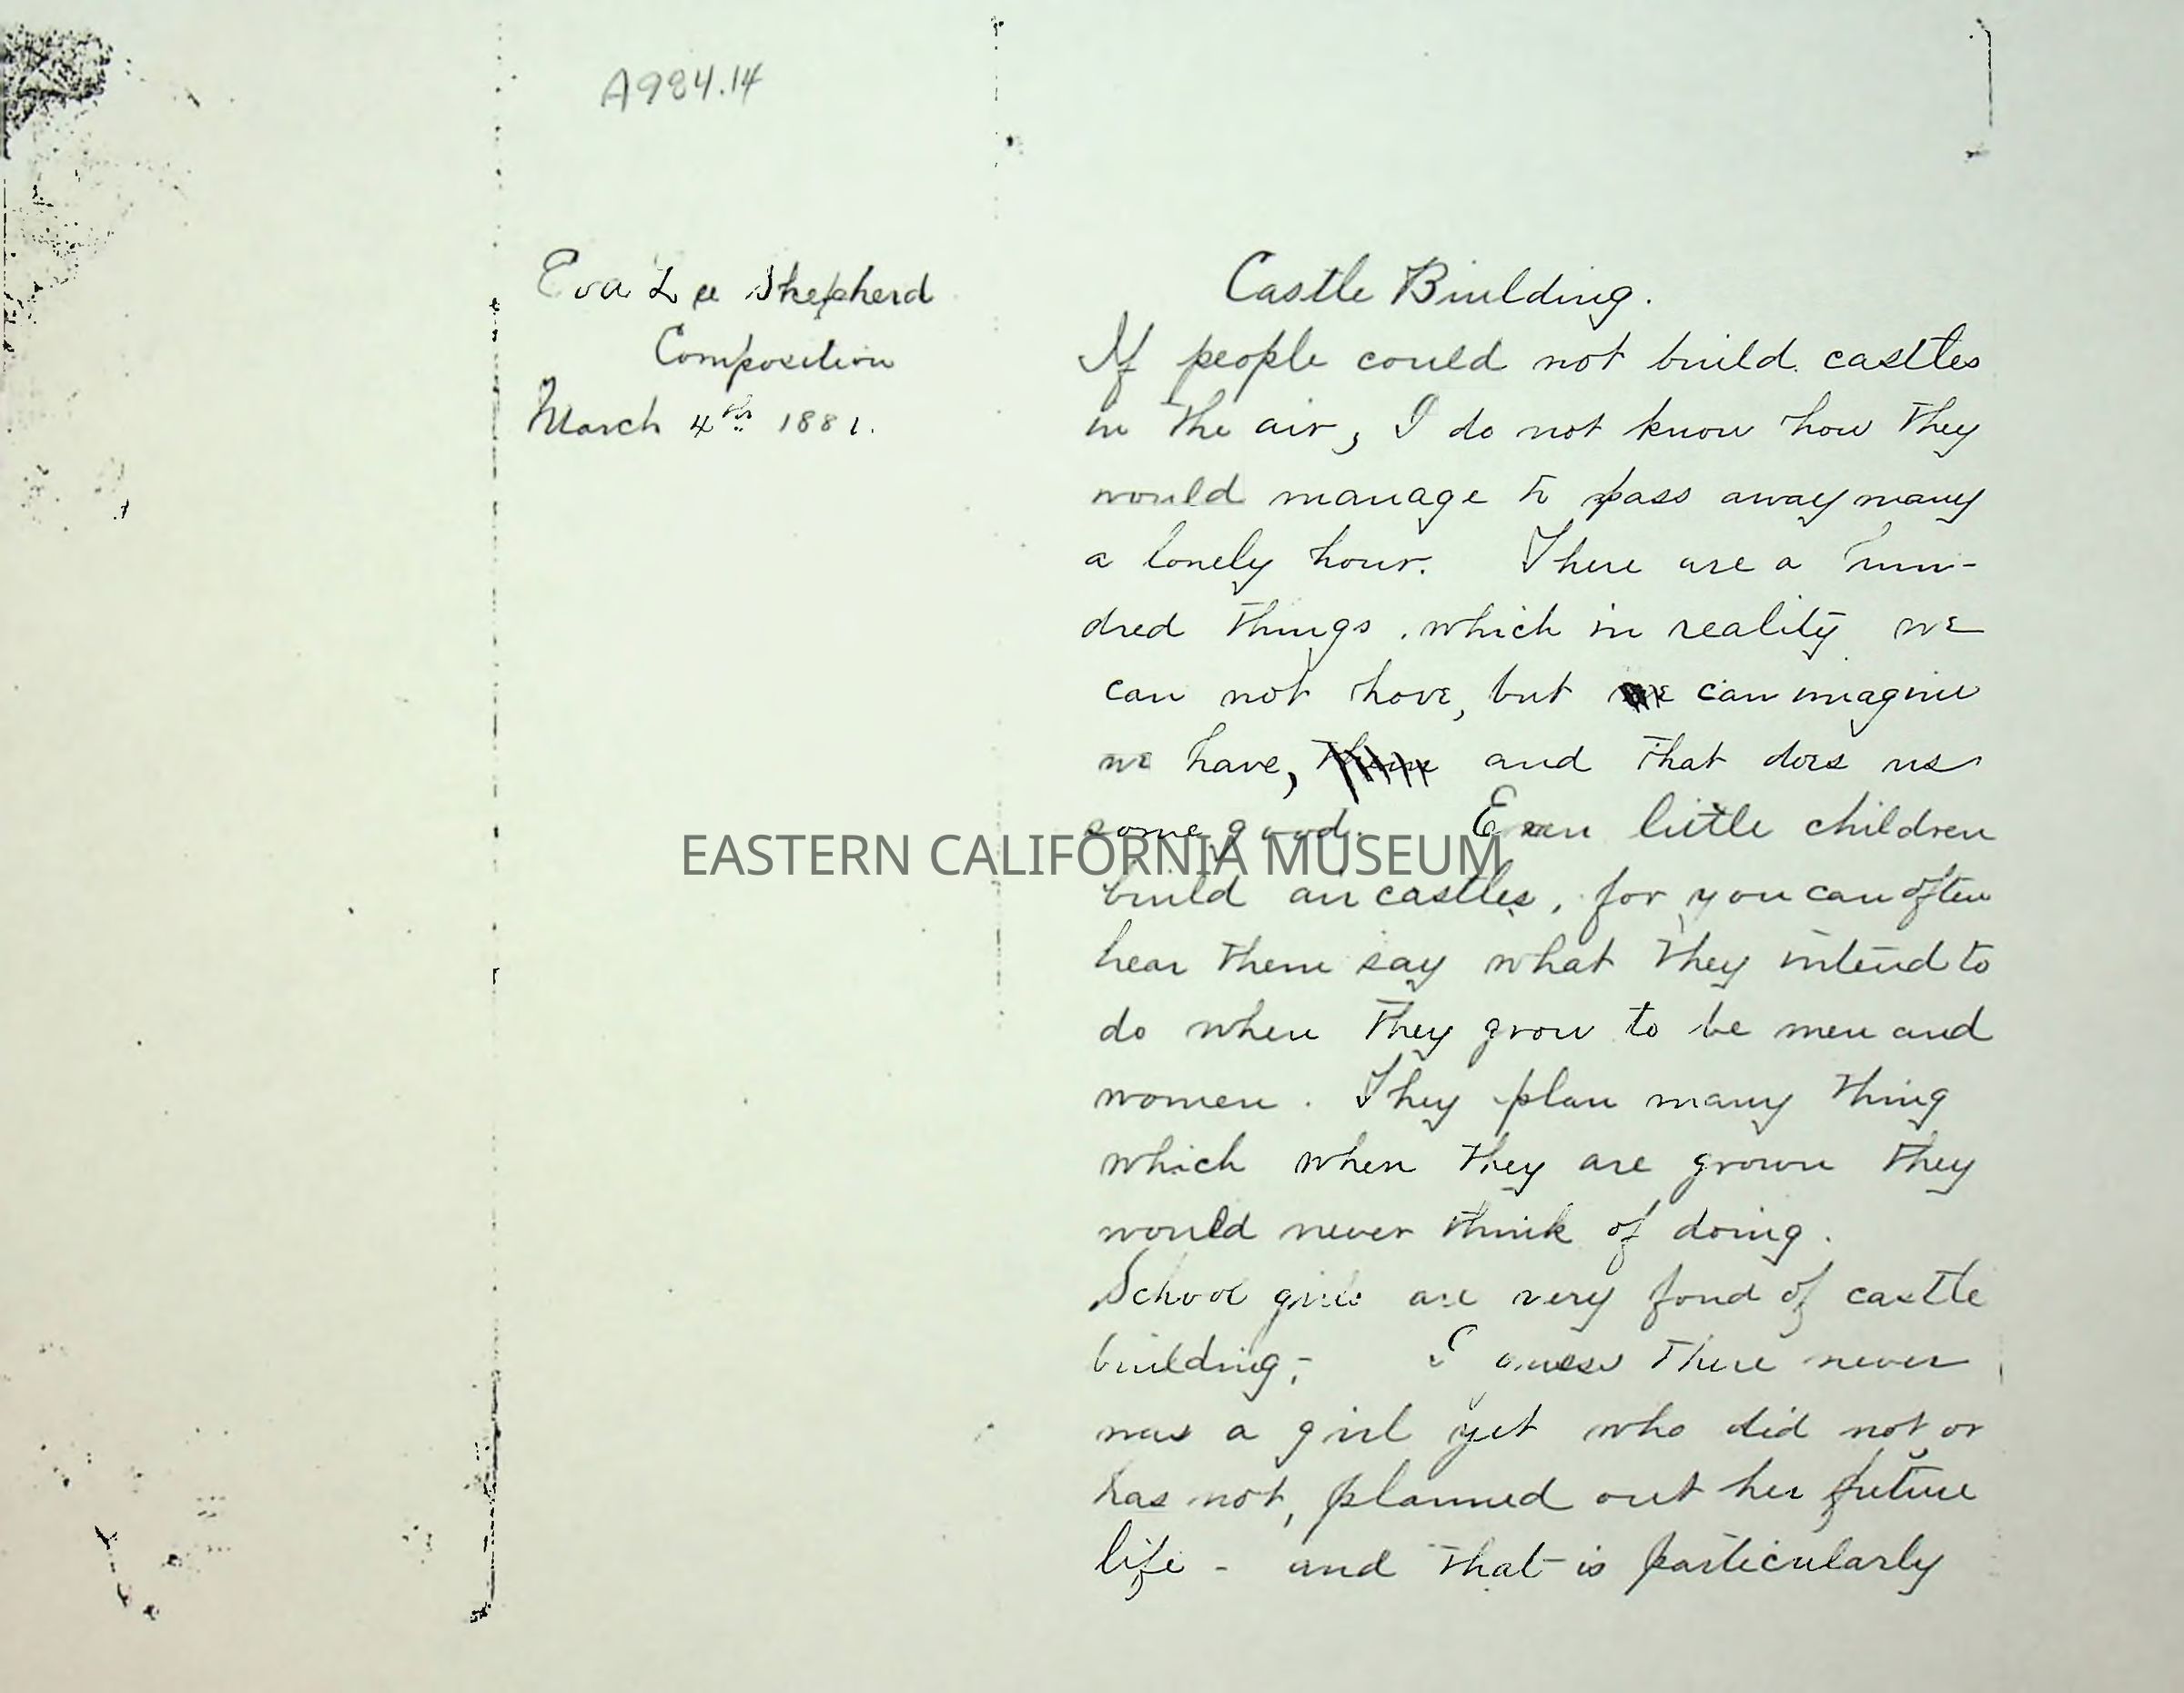 A984.14
Eva Lee Shepherd
Composition
March 4th 1881.
Castle Building.
If people could not build castles
in the air, I do not know how they
would manage to pass away many
a lonely hour. There are a hun-
dred things, which in reality we
can not have, but we can imagine
we have, them and that does us
some good. Even little children
build air castles, for you can often
hear them say what they intend to
do when they grow to be men and
women. They plan many thing
which when they are grown they
would never think of doing.
School girls are very fond of castle
building; I guess there never
was a girl yet who did not or
has not, planned out her future
life - and that is particularly
EASTERN CALIFORNIA MUSEUM